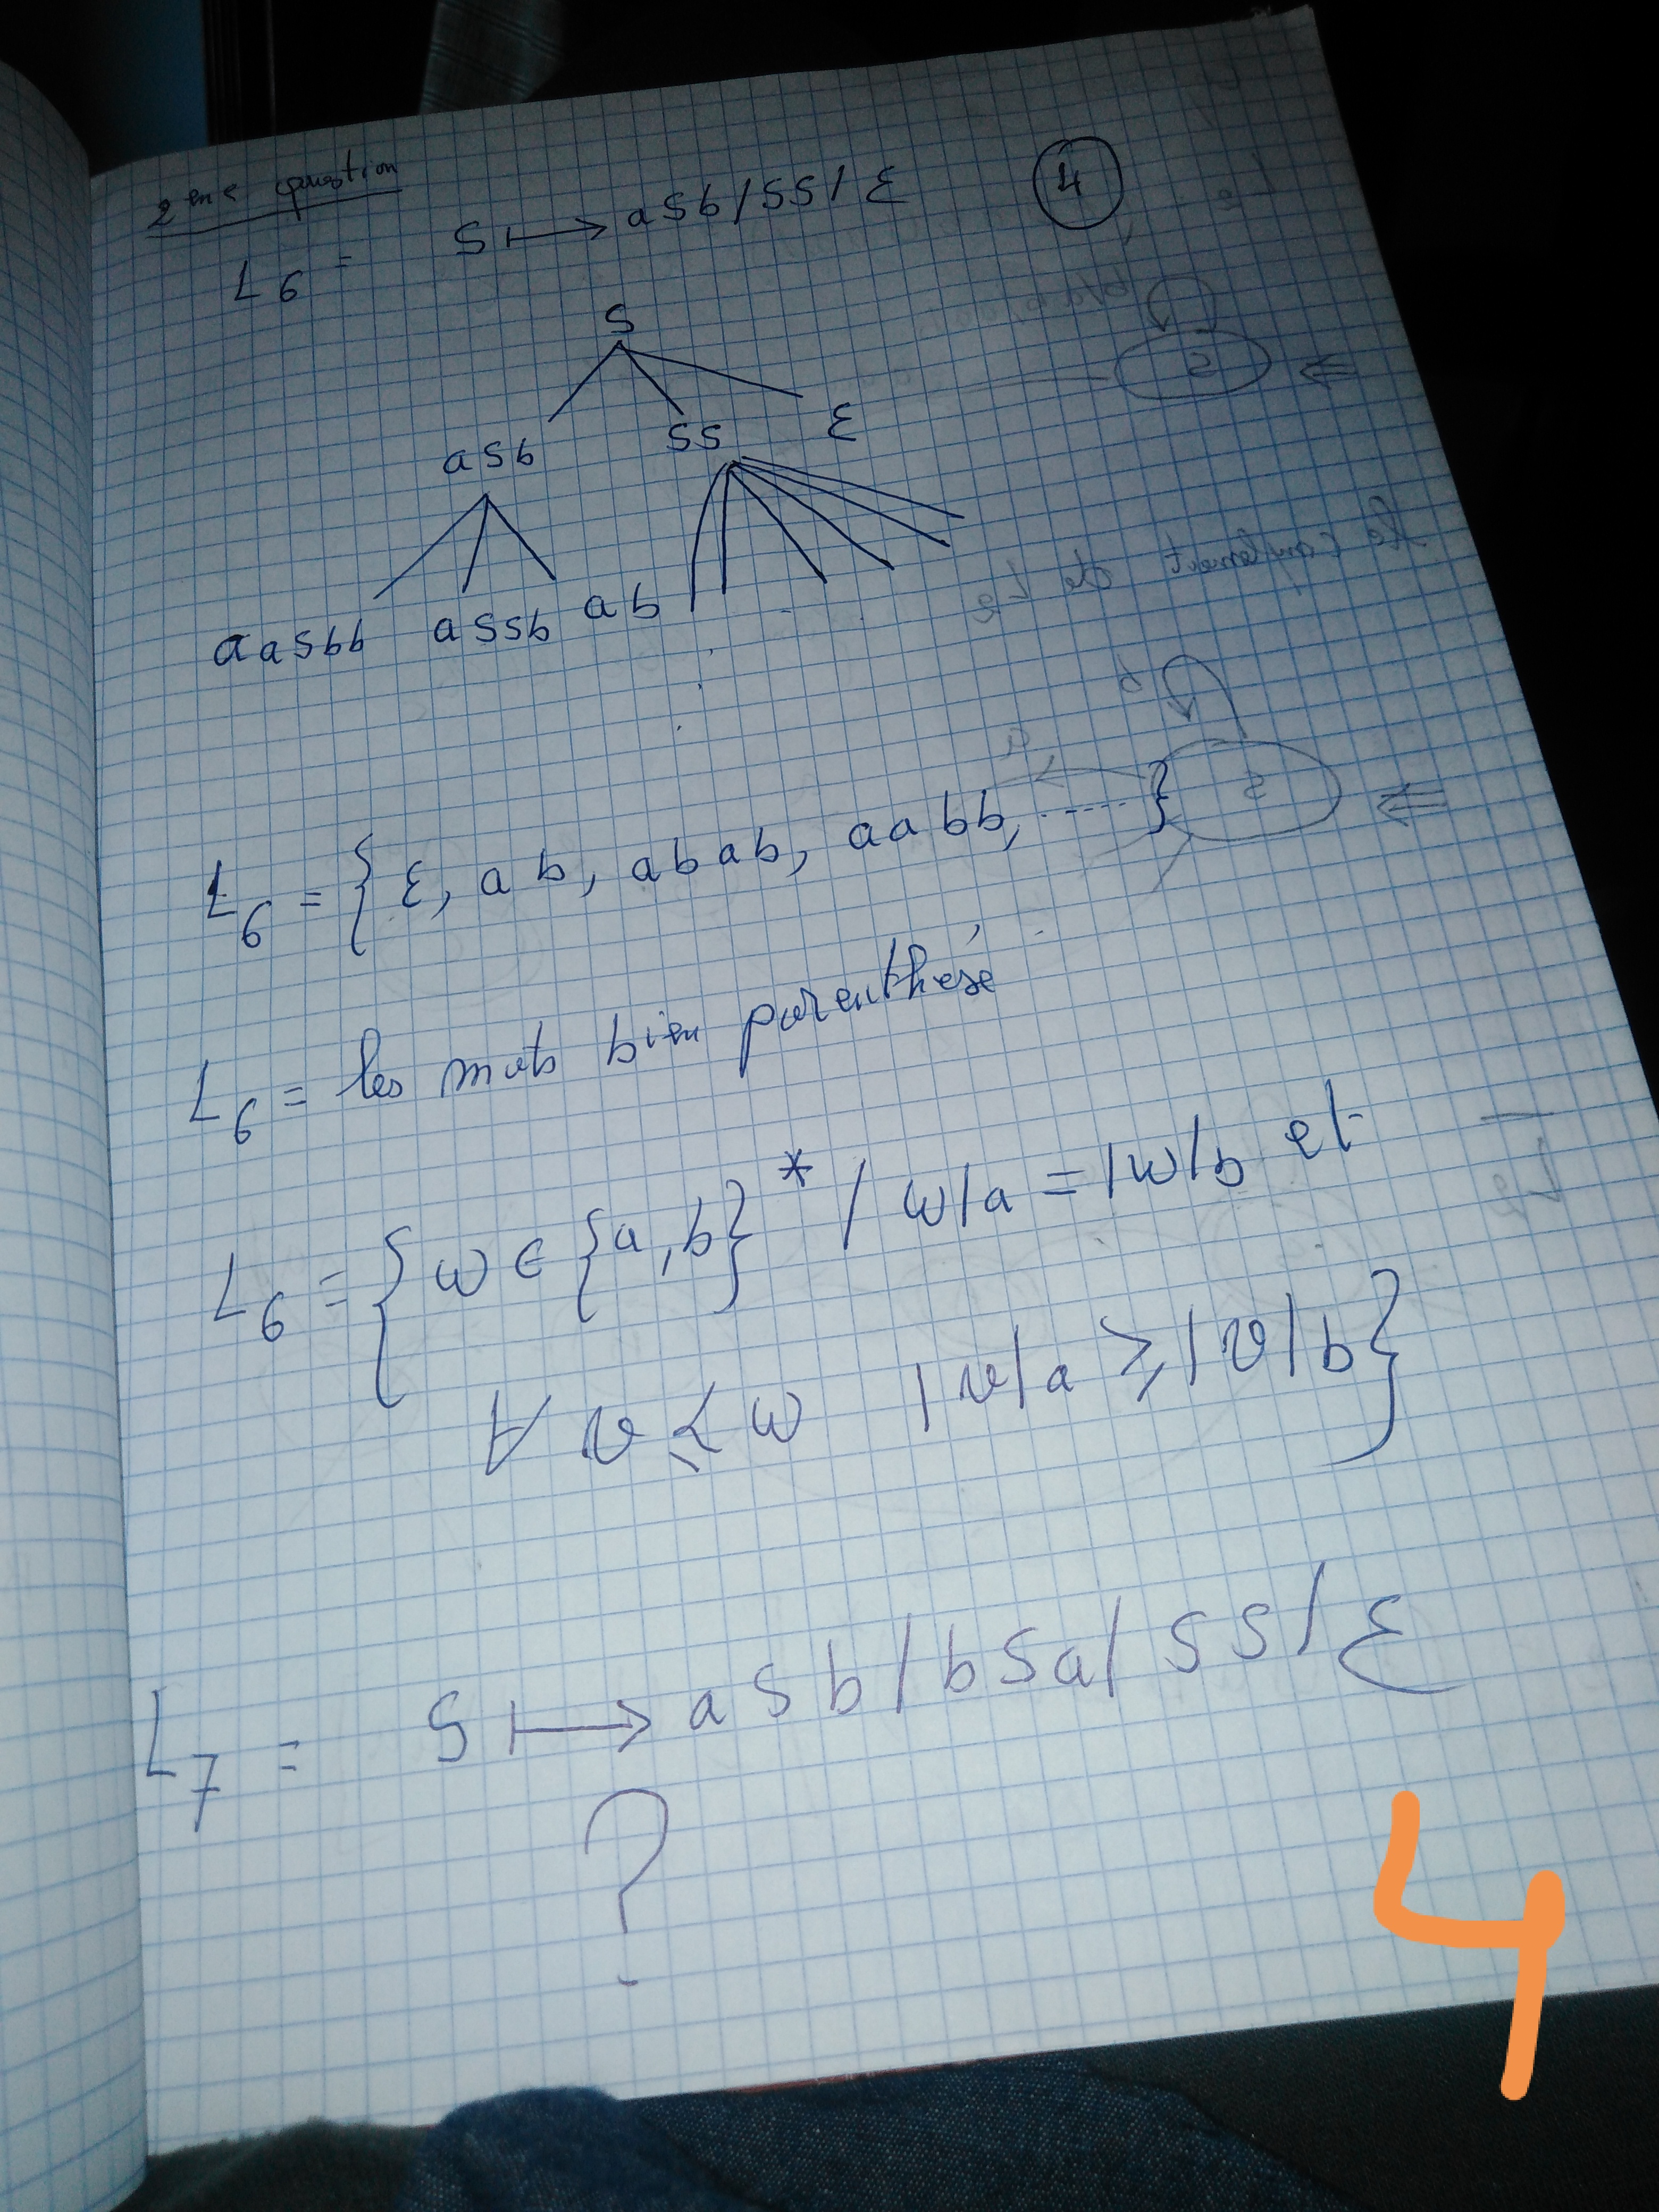 2ème question
④
L6 = S ⟼ aSb/SS/ε
S
aSb SS ε
aaSbb aSSb ab
L6 = { ε, ab, abab, aabb, ----- }
L6 = les mots bien parenthésé
L6 = { ω ∈ {a,b}* / ω/a = /ω/b et
∀ v ≼ ω /v/a ⩾ /v/b }
L7 = S ⟼ aSb/bSa/SS/ε
?
4